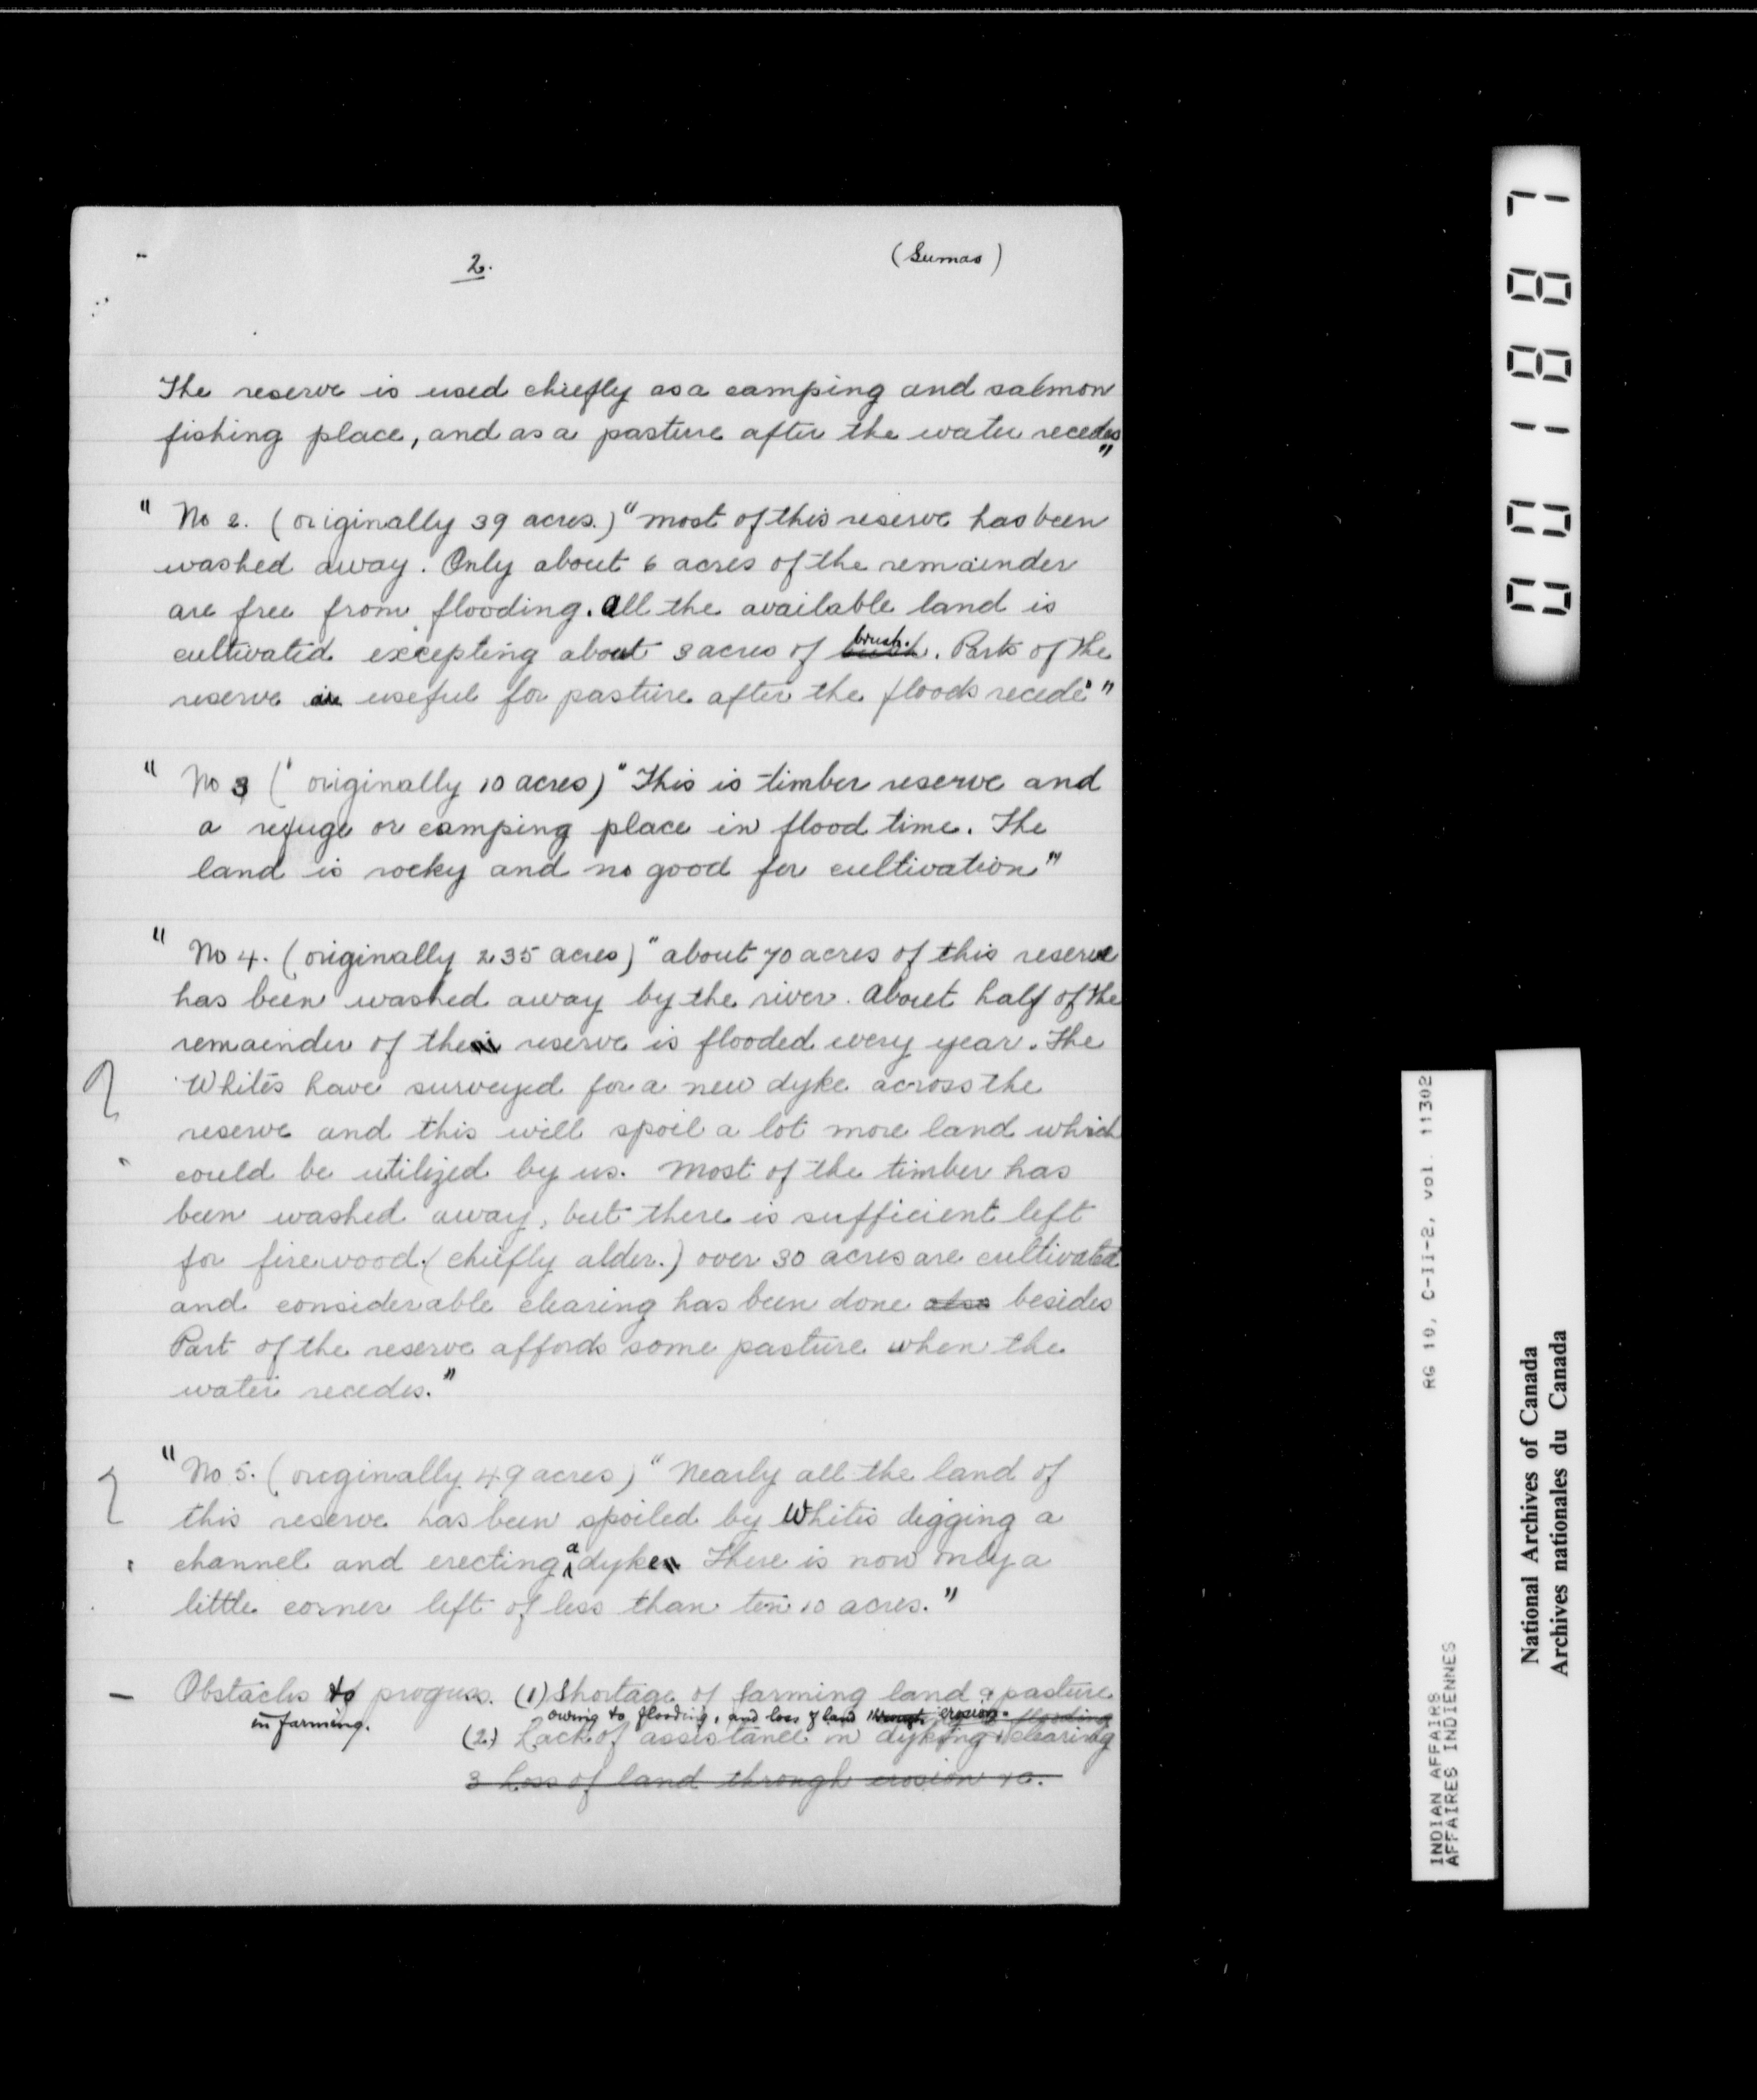 2.
(Sumas)
The reserve is used chiefly as a camping and salmon
fishing place, and as a pasture after the water recedes"
" No 2. (originally 39 acres.) "most of this reserve has been
washed away. Only about 6 acres of the remainder
are free from flooding. All the available land is
cultivated excepting about 3 acres of brush. Part of the
reserve is useful for pasture after the floods recede"
" No 3 (originally 10 acres) "This is timber reserve and
a refuge or camping place in flood time. The
land is rocky and no good for cultivation"
" No 4. (originally 235 acres) "about 70 acres of this reserve
has been washed away by the river. About half of the
remainder of the reserve is flooded every year. The
Whites have surveyed for a new dyke across the
reserve and this will spoil a lot more land which
could be utilized by us. Most of the timber has
been washed away, but there is sufficient left
for firewood. (chiefly alder.) over 30 acres are cultivated
and considerable clearing has been done also besides
Part of the reserve affords some pasture when the
water recedes."
"No 5. (originally 49 acres) "Nearly all the land of
this reserve has been spoiled by Whites digging a
channel and erecting a dyke. There is now only a
little corner left of less than ten 10 acres."
Obstacles to progress. (1) Shortage of farming land & pasture
in farming. owing to flooding, and loss of land through erosion. flooding
(2) Lack of assistance in dyking & clearing
3 Loss of land through erosion &c.
0001887
RG 10, C-II-2, vol. 11302
INDIAN AFFAIRS
AFFAIRES INDIENNES
National Archives of Canada
Archives nationales du Canada